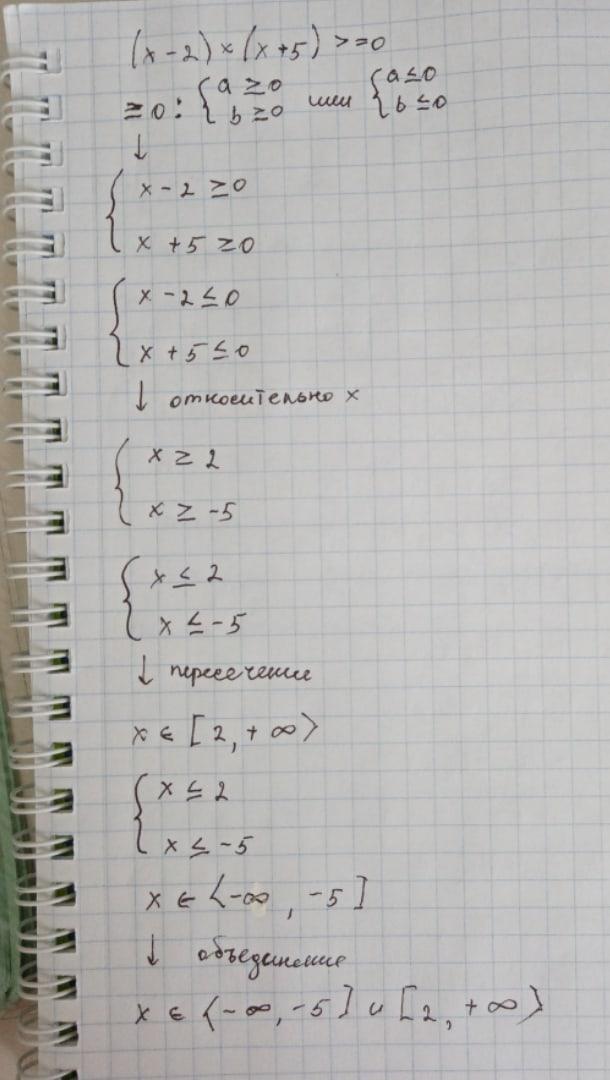 (x - 2) × (x + 5) >= 0
≥ 0 : { a ≥ 0 или { a ≤ 0
b ≥ 0 b ≤ 0
↓
{ x - 2 ≥ 0
x + 5 ≥ 0
{ x - 2 ≤ 0
x + 5 ≤ 0
↓ относительно x
{ x ≥ 2
x ≥ -5
{ x ≤ 2
x ≤ -5
↓ пересечение
x ∈ [2, + ∞⟩
{ x ≤ 2
x ≤ -5
x ∈ ⟨-∞, -5]
↓ объединение
x ∈ ⟨-∞, -5] ∪ [2, +∞⟩